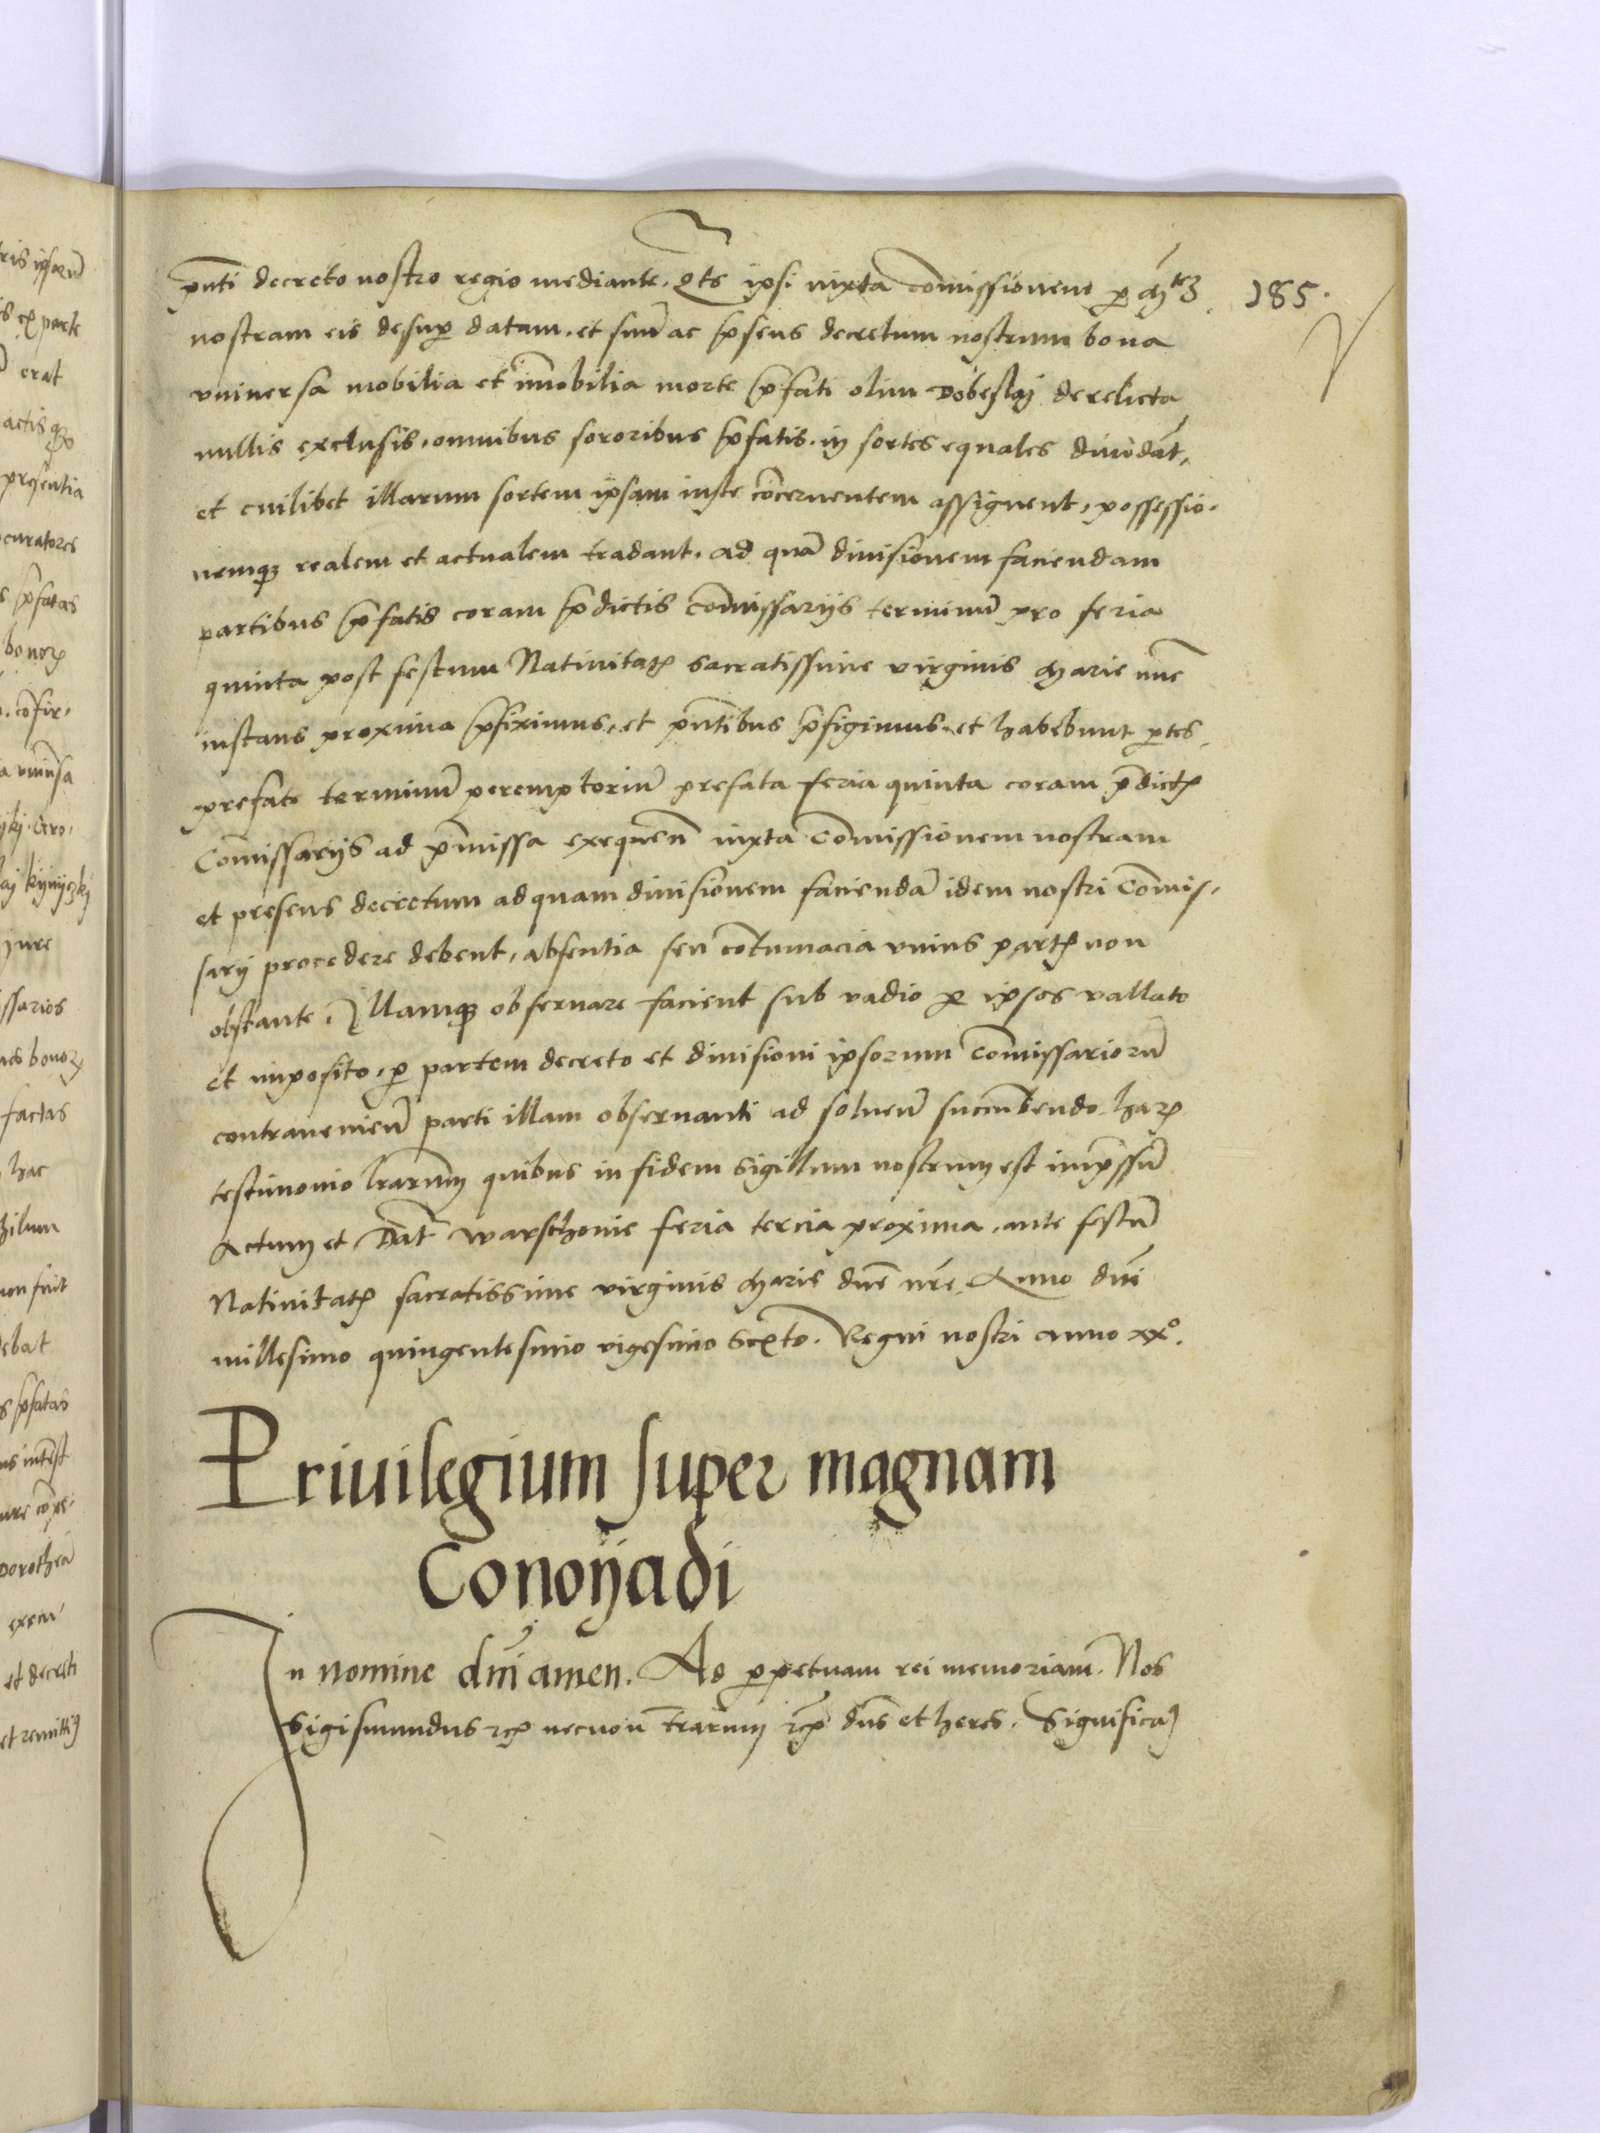 pnti decreto nostro regio mediante. Qts ipsi iuxta comissionem p mtẽ
185.
nostram eis desup datam. et sivẽ ac psens decretum nostrum bona
vniuersa mobilia et imobilia morte pfati olim Dobeslaj derelicta
nullis exclusis, omnibus sororibus pfatis. in sortes equales diuidãt,
et cuilibet illarum sortem ipsam iuste cõcernentem assignent, possessio.
nemqz realem et actualem tradant. ad quã diuisionem faciendam
partibus pfatis coram pdictis comissarijs terminũ pro feria
quinta post festum Natiuitatꝭ sacratissime virginis Marie nũc
instans proxima pfiximus, et pntibus pfigimus. et habebunt ptes
prefate terminũ peremptoriũ prefata feria quinta coram pdictꝭ
Comissarijs ad pmissa exequeñ iuxta Comissionem nostram
et presens decretum ad quam diuisionem faciendã idem nostri Comis,
sarij procedere debent, absentia seu cotumacia vnius partꝭ non
obstante. Illamqz obseruare facient sub vadio p ipsos vallato
et imposito, p partem decreto et diuisioni ipsorum comissariorũ
contraueniẽ parti illam obseruanti ad solueñ succũbendo. harꝝ
testimonio lrarum quibus in fidem sigillum nostrum est impssũ
Actum et Dat̃ Warschouie feria tercia proxima. ante festũ
Natiuitatꝭ sacratissime virginis Marie dnẽ nrẽ Anno dnĩ
millesimo quingentesimo vigesimo Sexto. Regni nostri anno xx°.
Priuilegium super magnam
Conoyadi
In nomine dnĩ amen. Ad ppetuam rei memoriam. Nos
Sigismundus rex necnon trarum etc dns et heres. Significa